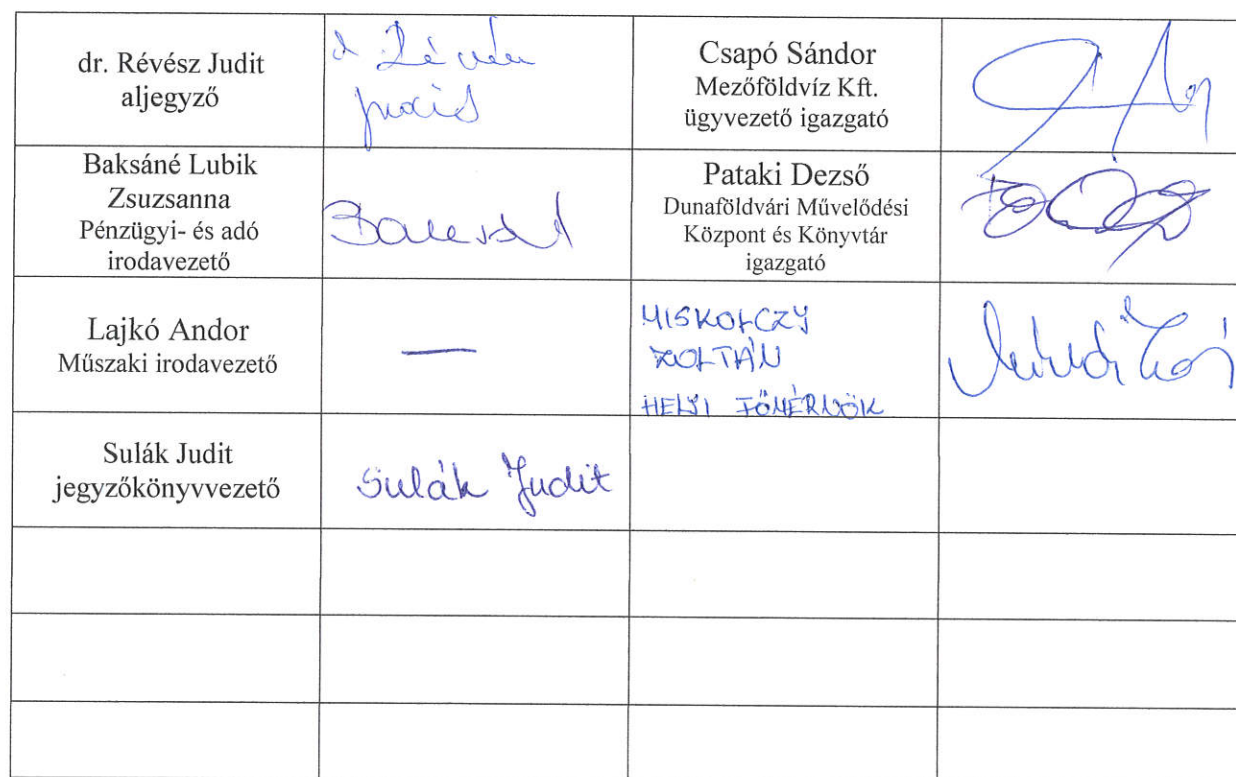 dr. Révész Judit
aljegyző
Csapó Sándor
Mezőföldvíz Kft.
ügyvezető igazgató
Baksáné Lubik
Zsuzsanna
Pénzügyi- és adó
irodavezető
Pataki Dezső
Dunaföldvári Művelődési
Központ és Könyvtár
igazgató
Lajkó Andor
Műszaki irodavezető
—
MISKOLCZY
ZOLTÁN
HELYI FŐMÉRNÖK
Sulák Judit
jegyzőkönyvvezető
Sulák Judit